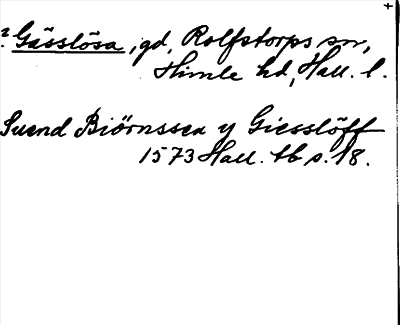 ? Gässlösa, gd, Rolfstorps sn,
Himle hd, Hall. l.
Suend Biörnssen y Giesslöff
1573 Hall. tb s. 18.